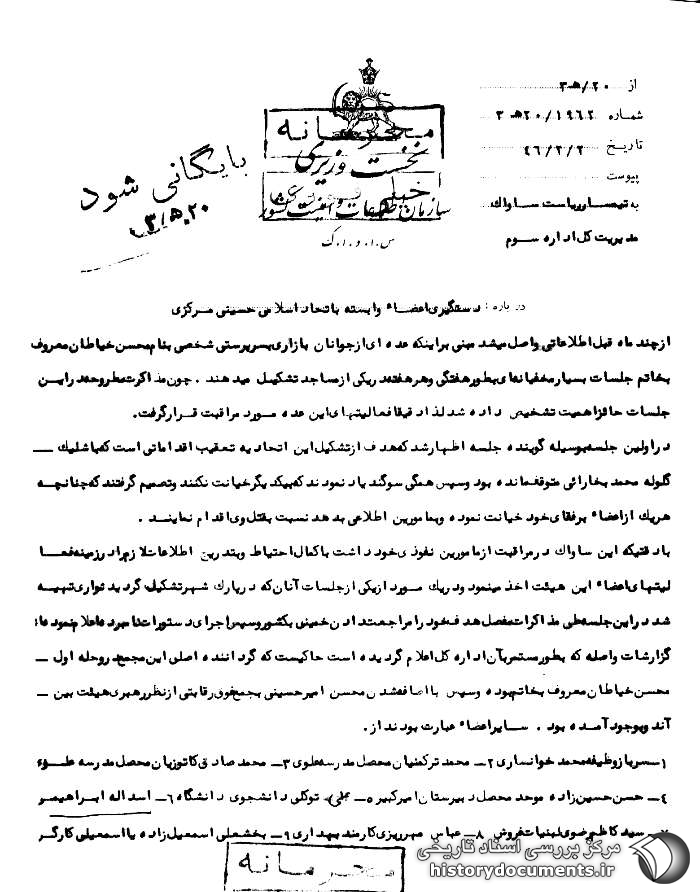 از ۲۰/ ه‍ ۳
شماره ۱۹۶۲/ ۲۰ ه‍ ۳
تاریخ ۴۶/۲/۲
پیوست
به تیمسار ریاست ساواک
مدیریت کل اداره سوم
محرمانه
نخست وزیری
سازمان اطلاعات و امنیت کشور
س.ا.و.ا.ک
بایگانی شود
در باره : دستگیری اعضاء وابسته باتحاد اسلامی حسینی مرکزی
از چند ماه قبل اطلاعاتی واصل میشد مبنی بر اینکه عده ای از جوانان بازاری بسرپرستی شخصی بنام محسن خیاطان معروف
بخاتم جلسات بسیار مخفیانه ای بطور هفتگی و هر هفته در یکی از مساجد تشکیل میدهند . چون مذاکرات مطروحه در این
جلسات حائز اهمیت تشخیص داده شد لذا دقیقا فعالیتهای این عده مورد مراقبت قرار گرفت.
در اولین جلسه بوسیله گوینده جلسه اظهار شد که هدف از تشکیل این اتحادیه تعقیب اقداماتی است که با شلیک ــ
گلوله محمد بخارائی متوقف مانده بود و سپس همگی سوگند یاد نمودند که بیکدیگر خیانت نکنند و تصمیم گرفتند که چنانچه
هر یک از اعضاء برفقای خود خیانت نموده و بمامورین اطلاعی بدهد نسبت بقتل وی اقدام نمایند .
با دقتیکه این ساواک در مراقبت از مامورین نفوذی خود داشت با کمال احتیاط و بتدریج اطلاعات لازم را در زمینه فعا
لیتهای اعضاء این هیئت اخذ مینمود و در یک مورد از یکی از جلسات آنان که در پارک شهر تشکیل گردید نواری تهیه
شد در این جلسه طی مذاکرات مفصل هدف خود را مراجعت دادن خمینی بکشور و سپس اجرای دستورات نامبرده اعلام نموده اند
گزارشات واصله که بطور مستمر بآن اداره کل اعلام گردیده است حاکیست که گرداننده اصلی این مجمع در وحله اول ــ
محسن خیاطان معروف بخاتم بوده و سپس با اضافه شدن محسن امیرحسینی بجمع فوق رقابتی از نظر رهبری هیئت بین ــ
آند و بوجود آمده بود . سایر اعضاء عبارت بودند از .
۱ـ سرباز وظیفه محمد خوانساری ۲ـ محمد ترکمنیان محصل مدرسه علوی ۳ـ محمد صادق کاتوزیان محصل مدرسه علوی
۴ـ حسن حسین زاده موحد محصل دبیرستان امیرکبیر ۵ـ علی توکلی دانشجوی دانشگاه ۶ـ اسداله ابراهیمپور
۷ـ سید کاظم رضوی لبنیات فروش ۸ـ عباس مهرریزی کارمند بهداری ۹ـ بخشعلی اسمعیل زاده یا اسمعیلی کارگر
محرمانه
مرکز بررسی اسناد تاریخی
historydocuments.ir